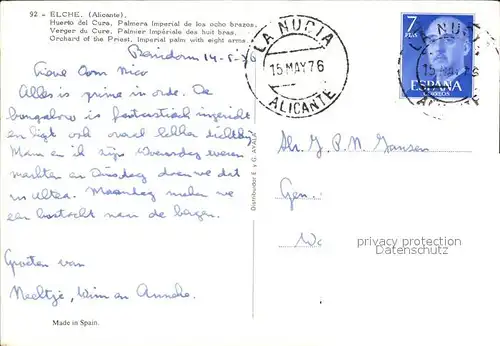 92 - ELCHE. (Alicante).
Huerto del Cura. Palmera Imperial de los ocho brazos.
Verger du Cure. Palmier Impériale des huit bras.
Orchard of the Priest. Imperial palm with eight arms.
Benidorm 14-5-76
Lieve Oom Mico
Alles is prima in orde. De
bungalow is fantastisch ingericht
en ligt ook overal lekker dichtbij
Mam en ik zijn Woensdag wezen
markten en Dinsdag doen we dat
in Altea. Maandag maken we
een bustocht naar de bergen.
Groeten van
Neeltje, Wim en Anneke.
Made in Spain.
Distribuidor E. y G. AYALA
LA NUCIA
15 MAY 76
ALICANTE
7
PTAS
ESPAÑA
CORREOS
LA NUCIA
15 MAY 76
ALICANTE
Dhr. G. P. N. Gansen
Gen.
Wo
privacy protection
Datenschutz